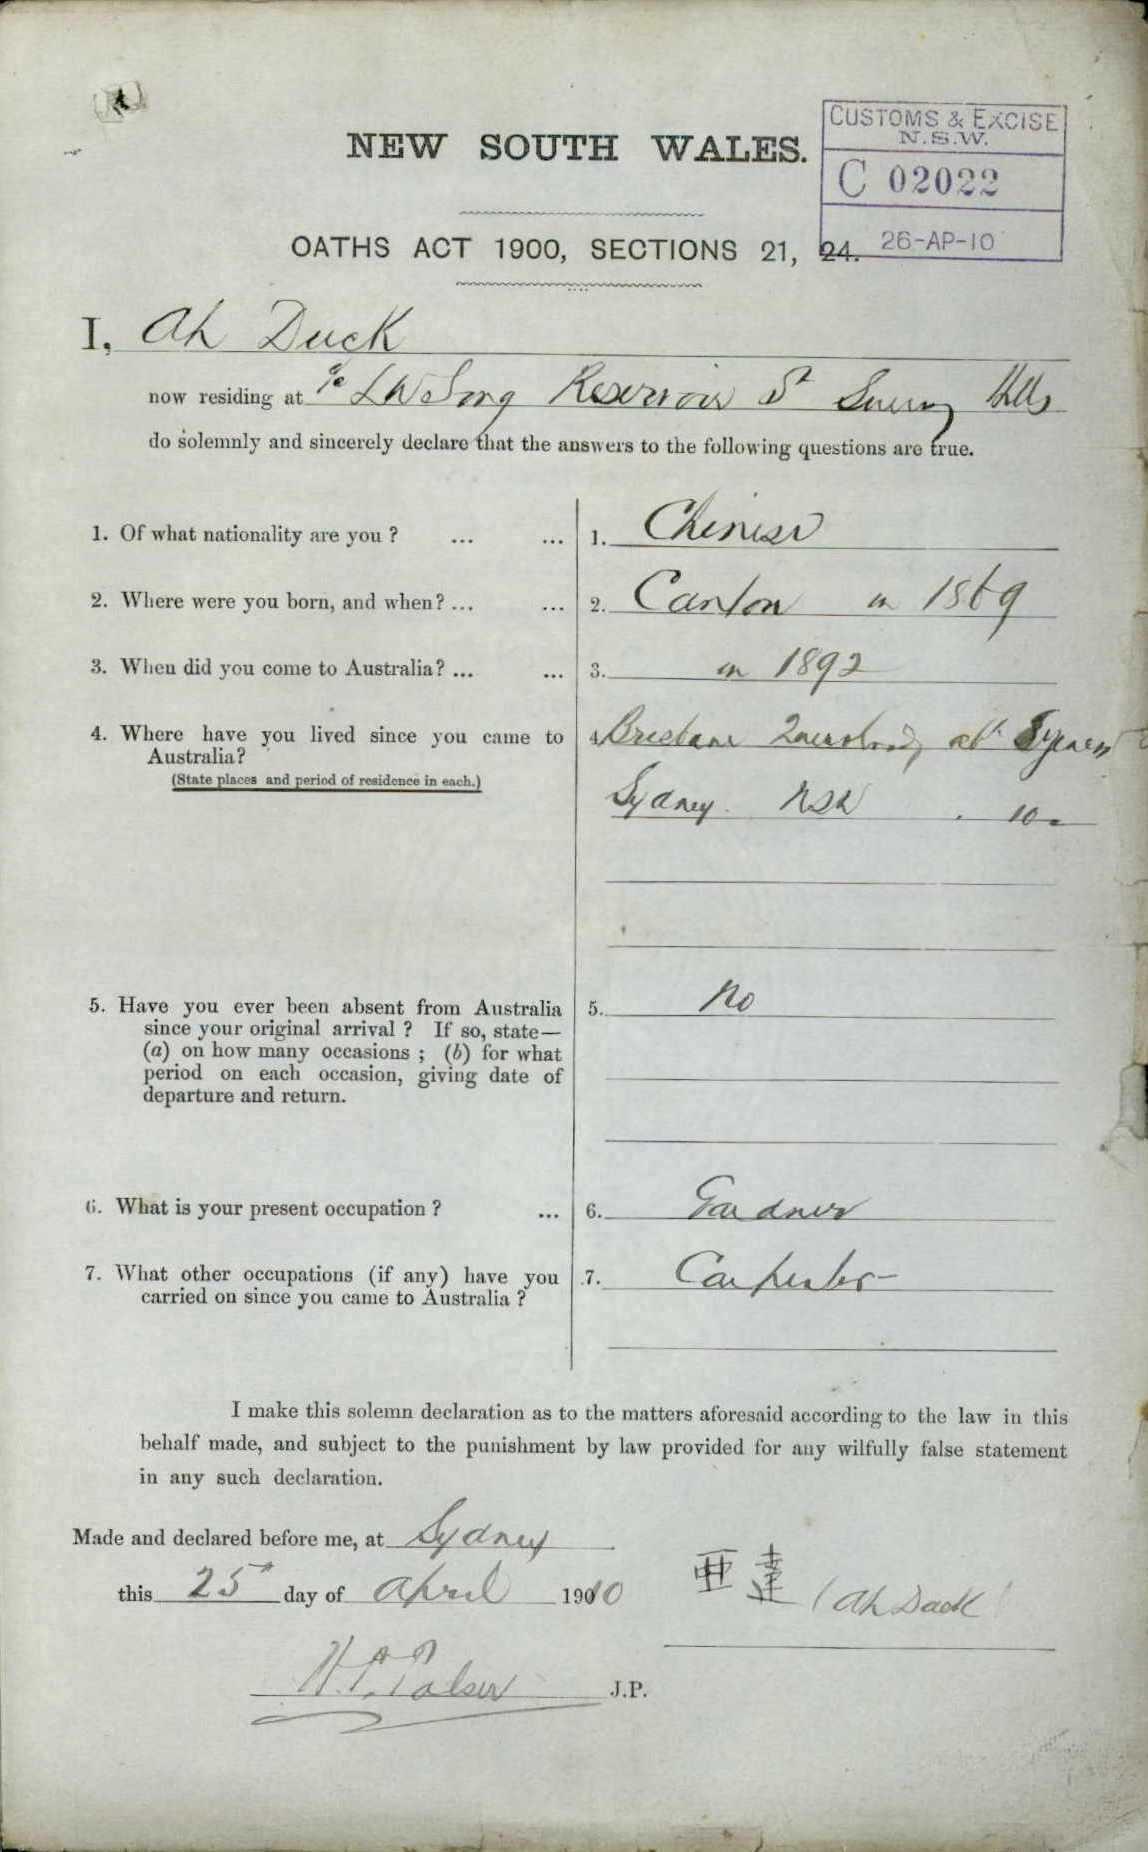 NEW SOUTH WALES.
CUSTOMS & EXCISE
N.S.W.
C 02022
26-AP-10
OATHS ACT 1900, SECTIONS 21, 24.
I, Ah Duck
now residing at c/o Reservoir St Surry Hills
do solemnly and sincerely declare that the answers to the following questions are true.
1. Of what nationality are you ? ... ... 1. Chinese
2. Where were you born, and when? ... ... 2. Canton in 1869
3. When did you come to Australia? ... ... 3. in 1892
4. Where have you lived since you came to 4. Brisbane Queensland abt 8 years
Australia?
(State places and period of residence in each.)
Sydney NSW 10
5. Have you ever been absent from Australia 5. No
since your original arrival ? If so, state—
(a) on how many occasions ; (b) for what
period on each occasion, giving date of
departure and return.
6. What is your present occupation ? ... 6. Gardner
7. What other occupations (if any) have you 7. Carpenter
carried on since you came to Australia ?
I make this solemn declaration as to the matters aforesaid according to the law in this
behalf made, and subject to the punishment by law provided for any wilfully false statement
in any such declaration.
Made and declared before me, at Sydney
this 25th day of April 1910
亞達 (Ah Duck)
J.P.